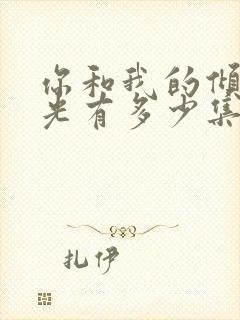 你和我的倾
光有多少集
扎伊